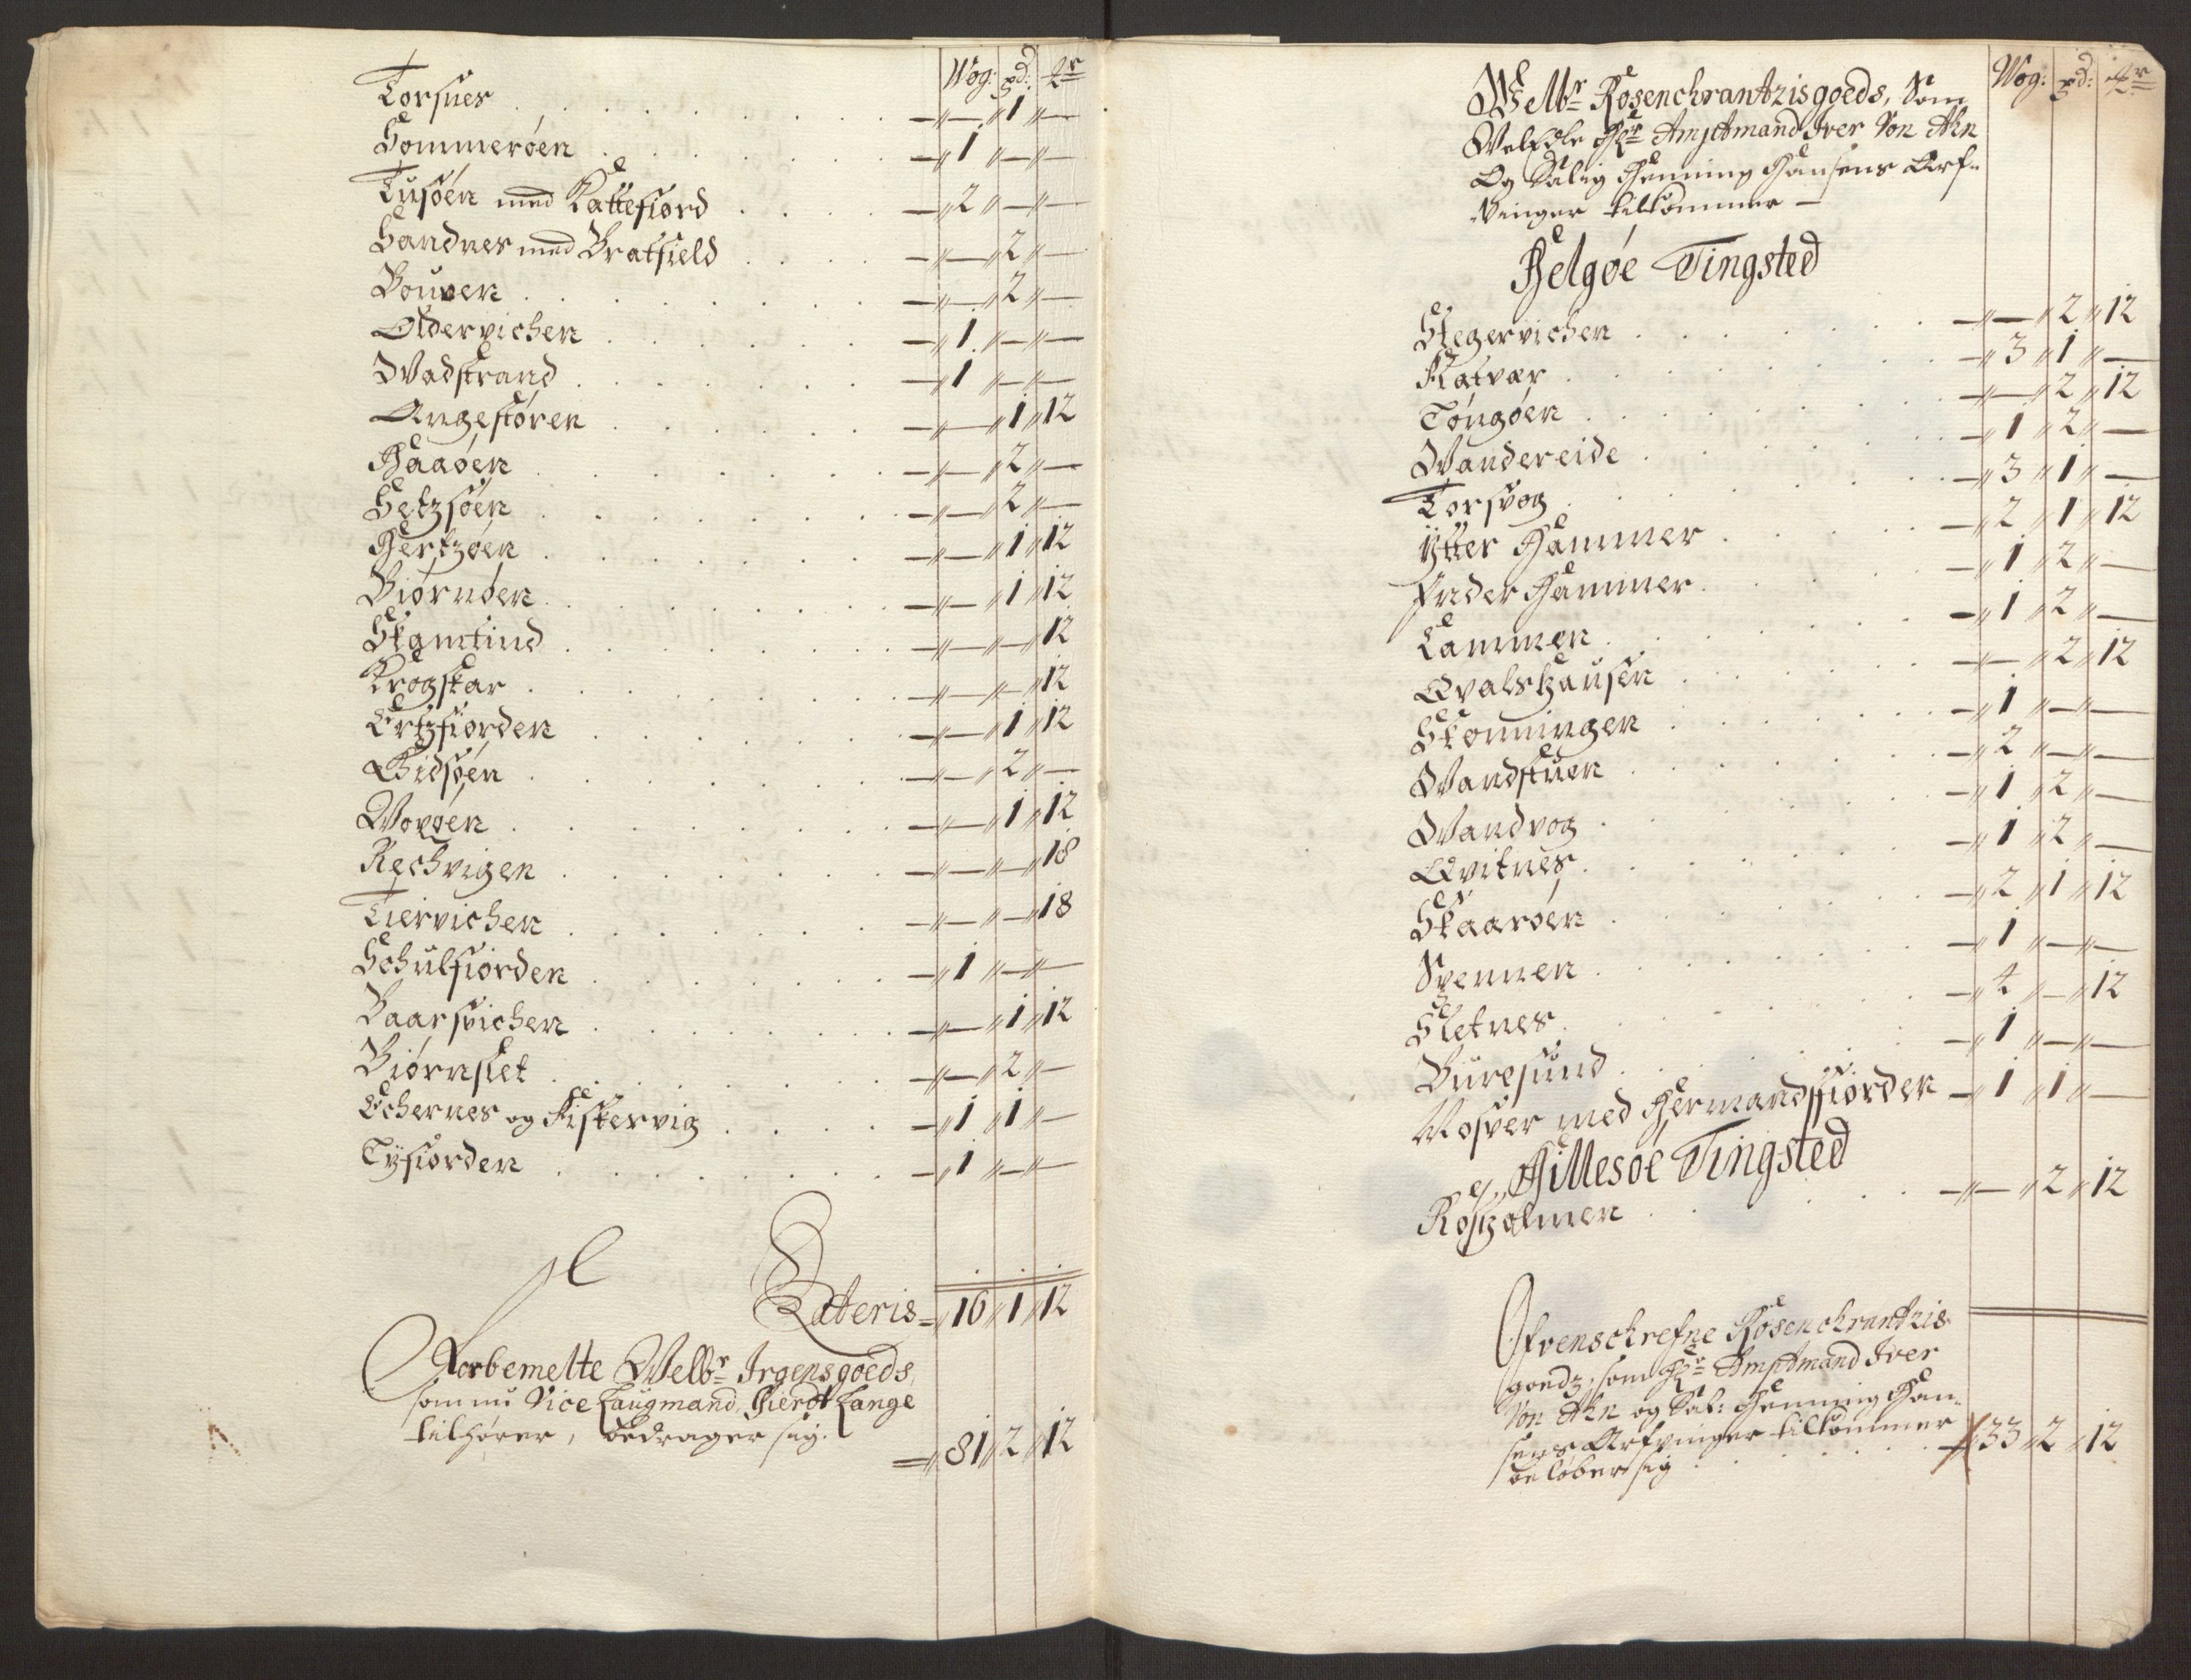 Wog: pd: mr
Torsnes . . . — „ — „ 1 „ —
Sommerøen . . . — „ 1 „ — „ —
Tusøen med Kattefiord . . . — „ 2 „ — „ —
Sandnes med Bratfield . . . — „ — „ 2 „ —
Bouven . . . — „ — „ 2 „ —
Oldervichen . . . — „ 1 „ — „ —
Wadstrand . . . — „ 1 „ — „ —
Angestøren . . . — „ — „ 1 „ 12
Haaøen . . . — „ — „ 2 „ —
Setzsøen . . . — „ — „ 2 „ —
Hertzøen . . . — „ — „ 1 „ 12
Biørnøen . . . — „ — „ 1 „ 12
Skamtind . . . — „ — „ — „ 12
Krogskar . . . — „ — „ — „ 12
Ertzfiorden . . . — „ — „ 1 „ 12
Gidsøen . . . — „ — „ 2 „ —
Woxøen . . . — „ — „ 1 „ 12
Rechvigen . . . — „ — „ — „ 18
Tiervichen . . . — „ — „ — „ 18
Schulfiorden . . . — „ 1 „ — „ —
Baarsvichen . . . — „ — „ 1 „ 12
Biørnslet . . . — „ — „ 2 „ —
Echernes og Fiskervig . . . — „ 1 „ 1 „ —
Tyfiorden . . . — „ 1 „ — „ —
Lateris = „ 16 „ 1 „ 12
Forbemelte Welbr Irgensgoeds,
som nu Vice Laugmand, Hierdt Lange
tilhører, bedrager sig. = „ 81 „ 2 „ 12
Wog: pd: mr
Welbr Rosenchrantzisgoeds, Som
Welædle Hr Amptmand Iver Von Ahn
Og Salig Henning Hansens Arf-
vinger tilkommer —
Helgøe Tingsted
Stegervichen . . . — „ — „ 2 „ 12
Flatvær . . . — „ 3 „ 1 „ —
Tongøen . . . — „ — „ 2 „ 12
Wandereide . . . — „ 1 „ 2 „ —
Torsvog . . . — „ 3 „ 1 „ —
Ytter Hammer . . . — „ 2 „ 1 „ 12
Inder Hammer . . . — „ 1 „ 2 „ —
Lammen . . . — „ 1 „ 2 „ —
Qvalshausen . . . — „ — „ 2 „ 12
Skonningen . . . — „ 1 „ — „ —
Wandstuen . . . — „ 2 „ — „ —
Wandvog . . . — „ 1 „ 2 „ —
Qvitnes . . . — „ 1 „ 2 „ —
Skaarøen . . . — „ 2 „ 1 „ 12
Svennen . . . — „ 1 „ — „ —
Sletnes . . . — „ 4 „ — „ 12
Buresund . . . — „ 1 „ — „ —
Mosver med Hermandsfiorden — „ 1 „ 1 „ —
Hillesøe Tingsted
Røszholmen . . . — „ — „ 2 „ 12
Ofvenschrefne Rosenchrantzis
goedz, som Hr Amptmand Iver
Von Ahn og Sal: Henning Han-
sens Arfvinger tilkommer
beløber sig . . . „ 33 „ 2 „ 12